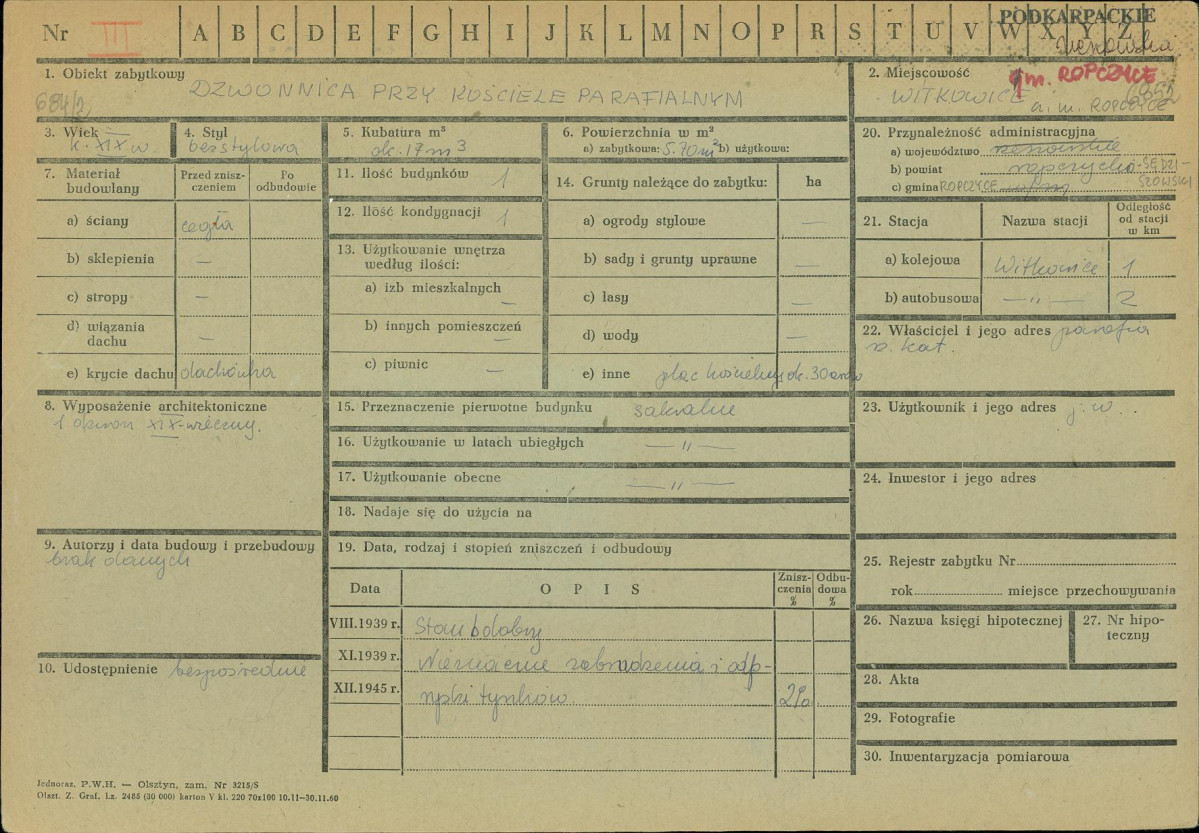 Nr III A B C D E F G H I J K L M N O P R S T U V W X Y Z
PODKARPACKIE
1. Obiekt zabytkowy
DZWONNICA PRZY KOŚCIELE PARAFIALNYM
684/2
2. Miejscowość
gm. ROPCZYCE
WITKOWICE
a. m. ROPCZYCE
3. Wiek
k. XIX w.
4. Styl
bezstylowa
5. Kubatura m³
ok. 17 m3
6. Powierzchnia w m²
a) zabytkowa: 5.70 m² b) użytkowa:
7. Materiał budowlany
Przed zniszczeniem
Po odbudowie
a) ściany cegła
b) sklepienia —
c) stropy —
d) wiązania dachu —
e) krycie dachu dachówka
8. Wyposażenie architektoniczne
1 dzwon XIX-wieczny.
9. Autorzy i data budowy i przebudowy
brak danych
10. Udostępnienie bezpośrednie
11. Ilość budynków 1
12. Ilość kondygnacji 1
13. Użytkowanie wnętrza według ilości:
a) izb mieszkalnych —
b) innych pomieszczeń —
c) piwnic —
14. Grunty należące do zabytku: ha
a) ogrody stylowe —
b) sady i grunty uprawne —
c) lasy —
d) wody —
e) inne plac kościelny ok. 30 arów
15. Przeznaczenie pierwotne budynku sakralne
16. Użytkowanie w latach ubiegłych — „ —
17. Użytkowanie obecne — „ —
18. Nadaje się do użycia na
19. Data, rodzaj i stopień zniszczeń i odbudowy
Data O P I S Zniszczenia % Odbudowa %
VIII.1939 r. Stan b dobry
XI.1939 r. Nieznaczne zabrudzenia i odp-
XII.1945 r. npki tynków. 2%
20. Przynależność administracyjna
a) województwo rzeszowskie
b) powiat ropczycko-SĘDZI-
SZOWSKI
c) gmina ROPCZYCE
21. Stacja Nazwa stacji Odległość od stacji w km
a) kolejowa Witkowice 1
b) autobusowa — „ — 2
22. Właściciel i jego adres parafia
rz. kat.
23. Użytkownik i jego adres j. w.
24. Inwestor i jego adres
25. Rejestr zabytku Nr
rok miejsce przechowywania
26. Nazwa księgi hipotecznej
27. Nr hipoteczny
28. Akta
29. Fotografie
30. Inwentaryzacja pomiarowa
Jednoraz. P.W.H. — Olsztyn, zam. Nr 3215/S
Olszt. Z. Graf. Lz. 2485 (30 000) karton V kl. 220 70x100 10.11—30.11.60